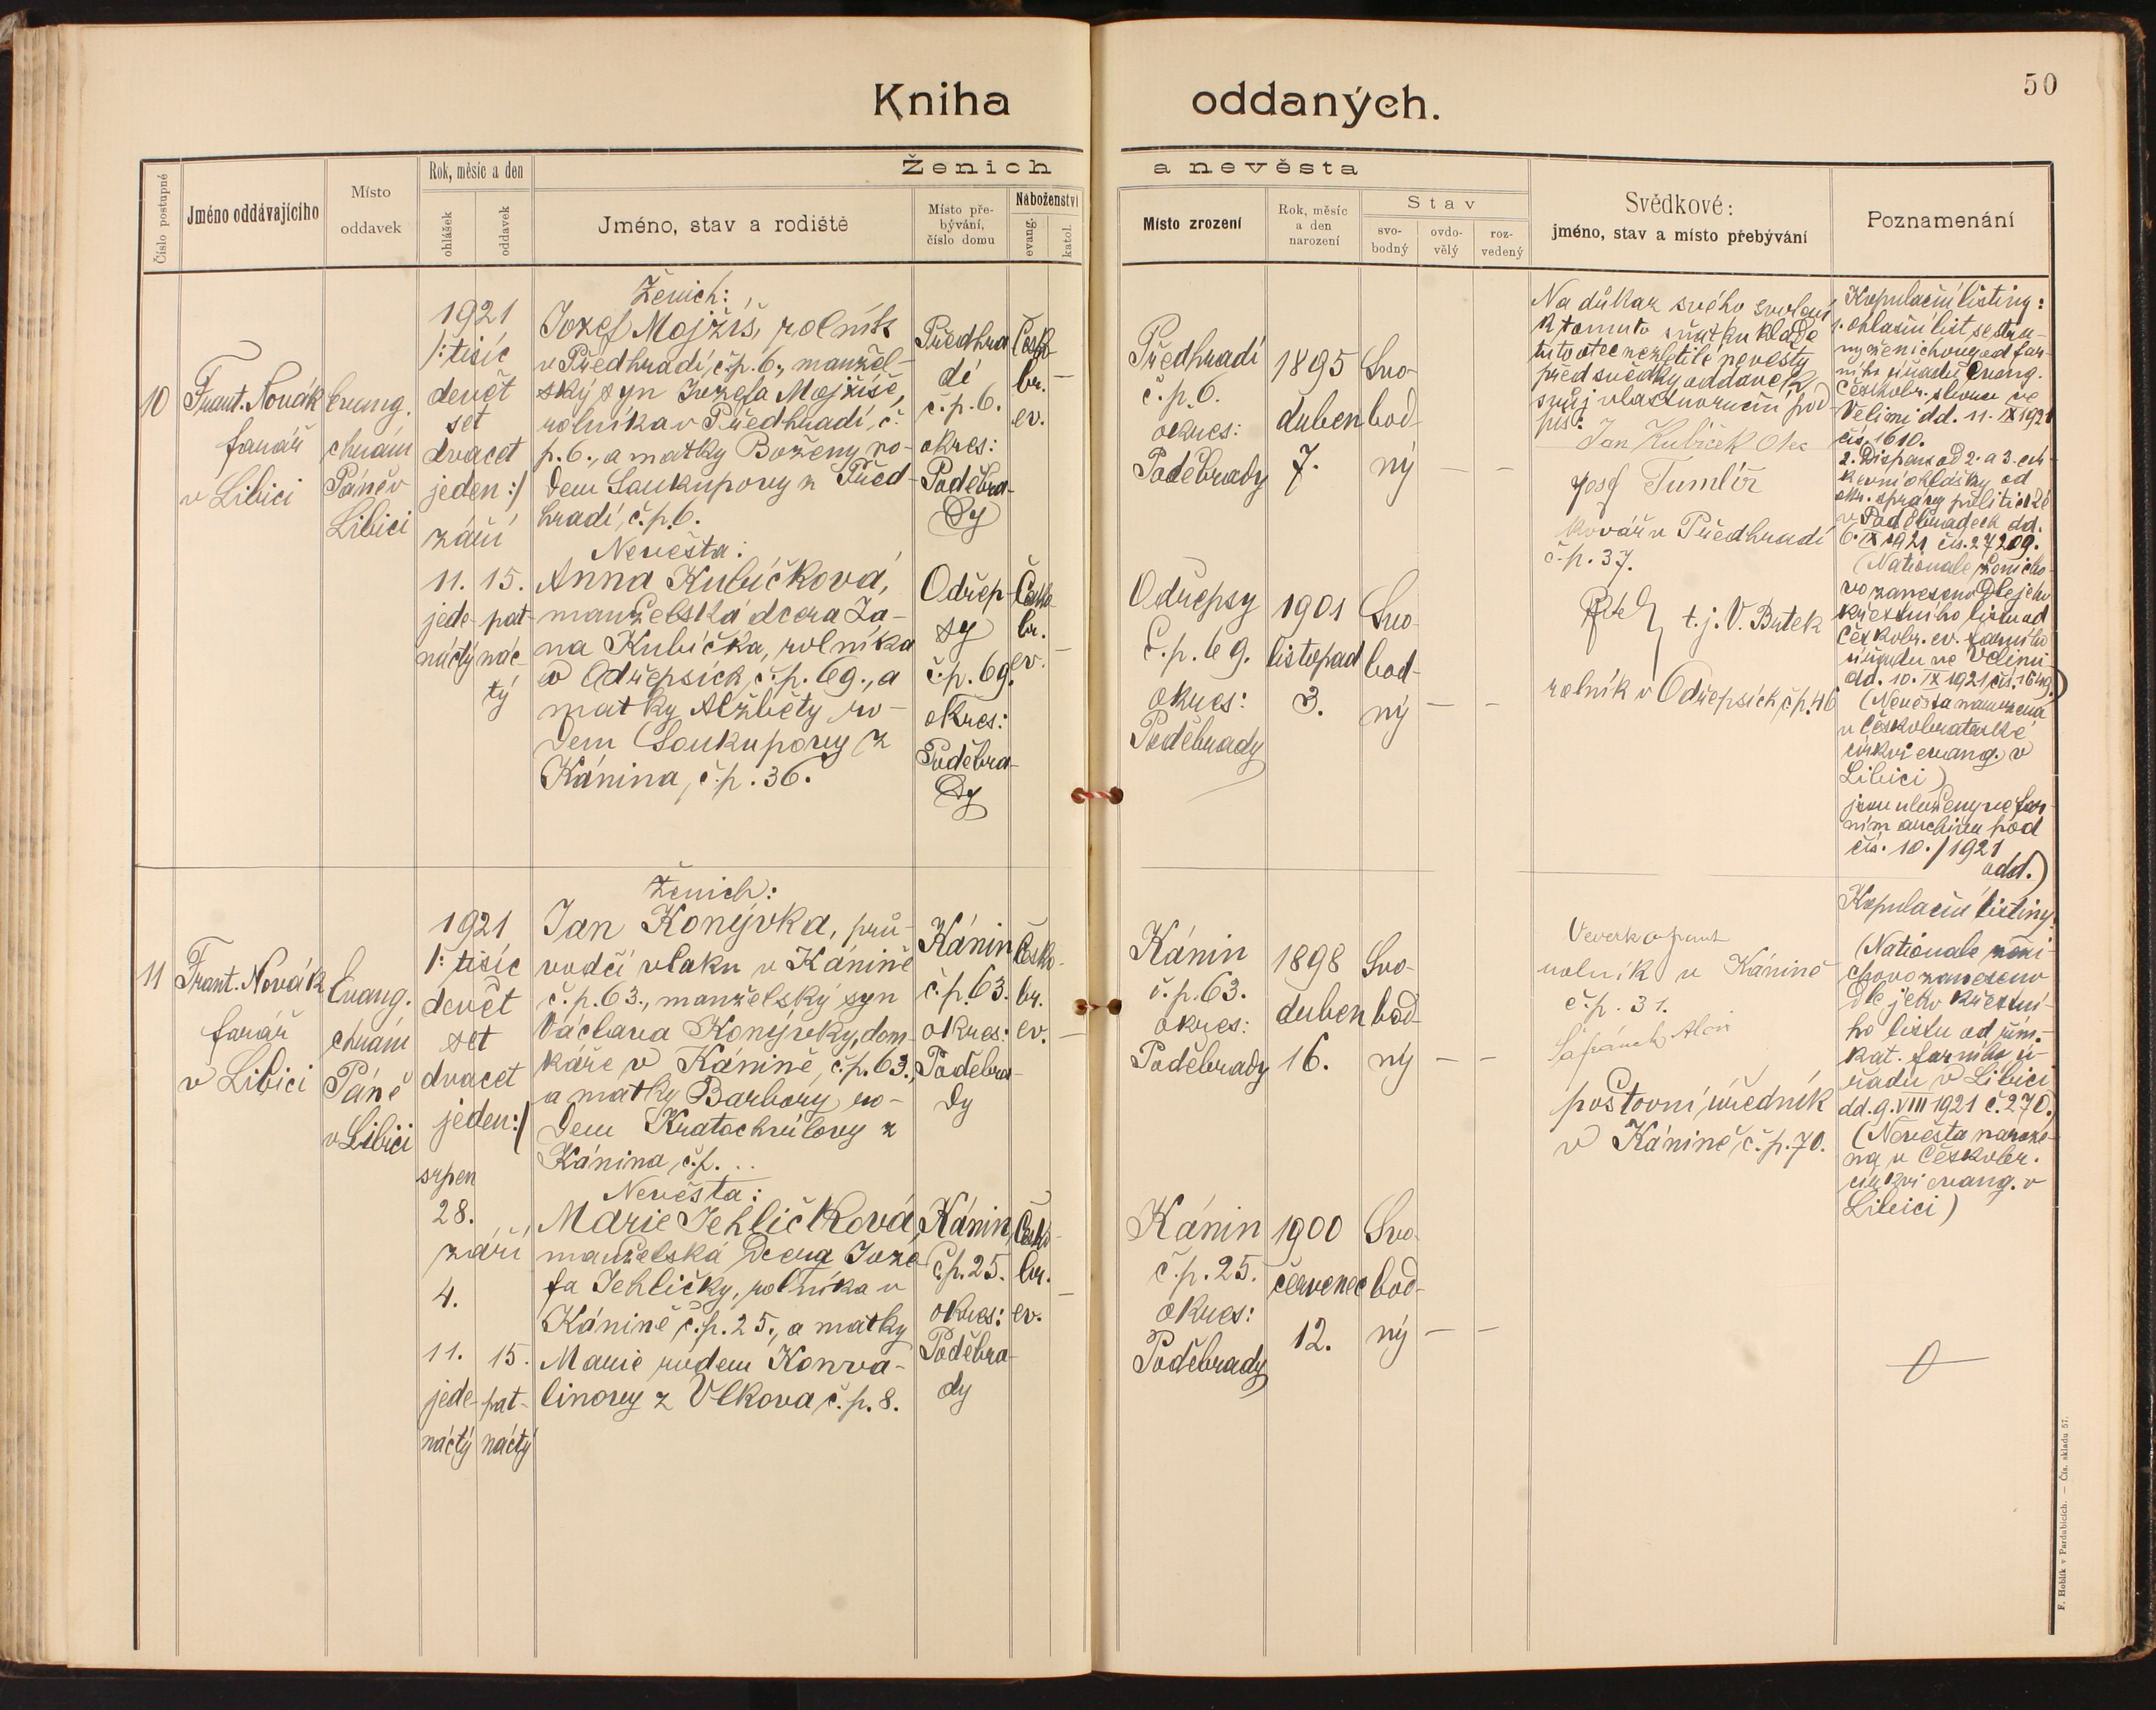 Kniha oddaných.
50
Číslo postupné
Jméno oddávajícího
Místo
oddavek
Rok, měsíc a den
ohlášek
oddavek
Ženich a nevěsta
Jméno, stav a rodiště
Místo pře-
bývání,
číslo domu
Náboženství
evang.
katol.
Místo zrození
Rok, měsíc
a den
narození
Stav
svo-
bodný
ovdo-
vělý
roz-
vedený
Svědkové:
jméno, stav a místo přebývání
Poznamenání
10
Frant. Novák
farář
v Libici
Evang.
chrám
Páně v
Libici
1921
/: tisíc
devět
set
dvacet
jeden :/
září
11. 15.
jede- pat-
náctý nác-
tý
Ženich:
Jozef Mojžíš, rolník
v Předhradí, č.p. 6., manžel-
ský syn Jozefa Mojžíše,
rolníka v Předhradí, č.
p. 6., a matky Boženy ro-
dem Soukupovy z Před-
hradí, č.p. 6.
Nevěsta:
Anna Kubíčková,
manželská dcera Ja-
na Kubíčka, rolníka
v Odřepsích, č.p. 69., a
matky Alžběty ro-
dem Soukupovy z
Kánina, č.p. 36.
Předhra-
dí
č.p. 6.
okres:
Poděbra-
dy
Česko-
br.
ev.
—
Odřep-
sy
č.p. 69.
okres:
Poděbra-
dy
Česko-
br.
ev.
—
Předhradí
č.p. 6.
okres:
Poděbrady
1895
duben
7.
Svo-
bod-
ný
— —
Odřepsy
č.p. 69.
okres:
Poděbrady
1901
listopad
3.
Svo-
bod-
ný
— —
Na důkaz svého svolení
k tomuto sňatku klade
tuto otec nezletilé nevěsty
před svědky oddavek
svůj vlastnoruční pod-
pis:
Jan Kubíček otec
Josef Tumlíř
kovář v Předhradí
č.p. 37.
t. j. V. Butek
rolník v Odřepsích č.p. 46
Kopulační listiny:
1. ohlašní list sestra-
ny ženichovy od far-
ního úřadu evang.
českobr. sboru ve
Velimi dd. 11. IX 1921
čís. 1610.
2. Dispens od 2. a 3. cír-
kevní ohlášky od
okr. správy politické
v Poděbradech dd.
6. IX 1921 čís. 27209.
(Nationale ženicho-
vo zaneseno dle jeho
křestního listu od
českobr. ev. farního
úřadu ve Velimi
dd. 10. IX 1921, čís. 1649.)
(Nevěsta narozena
v českobratrské
církvi evang. v
Libici)
jsou uloženy ve far-
ním archivu pod
čís. 10./1921
odd.)
11
Frant. Novák
farář
v Libici
Evang.
chrám
Páně
v Libici
1921
/: tisíc
devět
set
dvacet
jeden :/
srpen
28.
září
4.
11. 15.
jede- pat-
náctý náctý
Ženich:
Jan Konývka, prů-
vodčí vlaku v Káníně
č.p. 63., manželský syn
Václava Konývky, dom-
káře v Káníně, č.p. 63.,
a matky Barbory ro-
dem Kratochvílovy z
Kánina, č.p. ...
Nevěsta:
Marie Jehličková,
manželská dcera Joze-
fa Jehličky, rolníka v
Káníně č.p. 25., a matky
Marie rodem Konva-
linovy z Vlkova č.p. 8.
Kánin
č.p. 63.
okres:
Poděbra-
dy
Česko-
br.
ev.
—
Kánin,
č.p. 25.
okres:
Poděbra-
dy
Česko-
br.
ev.
—
Kánin
č.p. 63.
okres:
Poděbrady
1898
duben
16.
Svo-
bod-
ný
— —
Kánin
č.p. 25.
okres:
Poděbrady
1900
červenec
12.
Svo-
bod-
ný
— —
Veverka
rolník v Káníně
č.p. 31.
Alois
poštovní úředník
v Káníně, č.p. 70.
Kopulační listiny.
(Nationale ženi-
chovo zaneseno
dle jeho křestní-
ho listu od řím.-
kat. farního ú-
řadu v Libici
dd. 9. VIII 1921 č. 270.)
(Nevěsta naroze-
na v českobr.
církvi evang. v
Libici)
F. Hoblík v Pardubicích. — Čís. skladu 57.